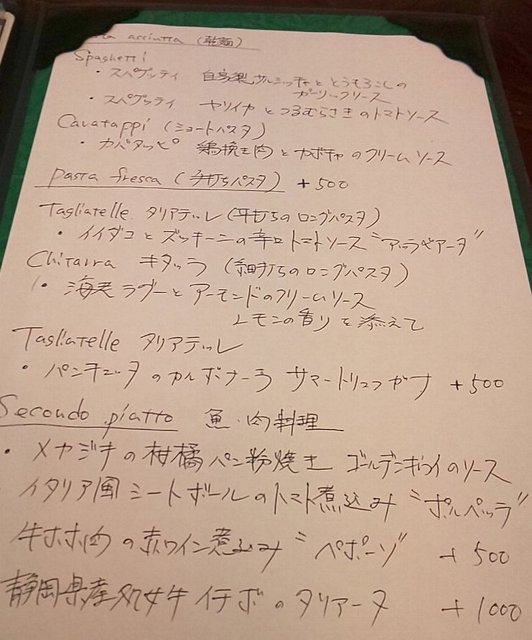 asciutta (乾麺)
Spaghetti
・スパゲッティ 自家製サルシッチャととうもろこしの
ガーリックソース
・スパゲッティ ヤリイカとつるむらさきのトマトソース
Cavatappi (ショートパスタ)
・カバタッピ 鶏挽き肉とカボチャのクリームソース
pasta fresca (手打ちパスタ) +500
Tagliatelle タリアテッレ (平打ちのロングパスタ)
・イイダコとズッキーニの辛口トマトソース "アラビアータ"
Chitarra キタッラ (細打ちのロングパスタ)
・海老ラグーとアーモンドのクリームソース
レモンの香りを添えて
Tagliatelle タリアテッレ
・パンチェッタのカルボナーラ サマートリュフがけ +500
Secondo piatto 魚・肉料理
・メカジキの柑橘パン粉焼き ゴールデンキウイのソース
イタリア風ミートボールのトマト煮込み "ポルペッテ"
牛ホホ肉の赤ワイン煮込み "ペポーゾ" +500
静岡県産処女牛イチボのタリアータ +1000